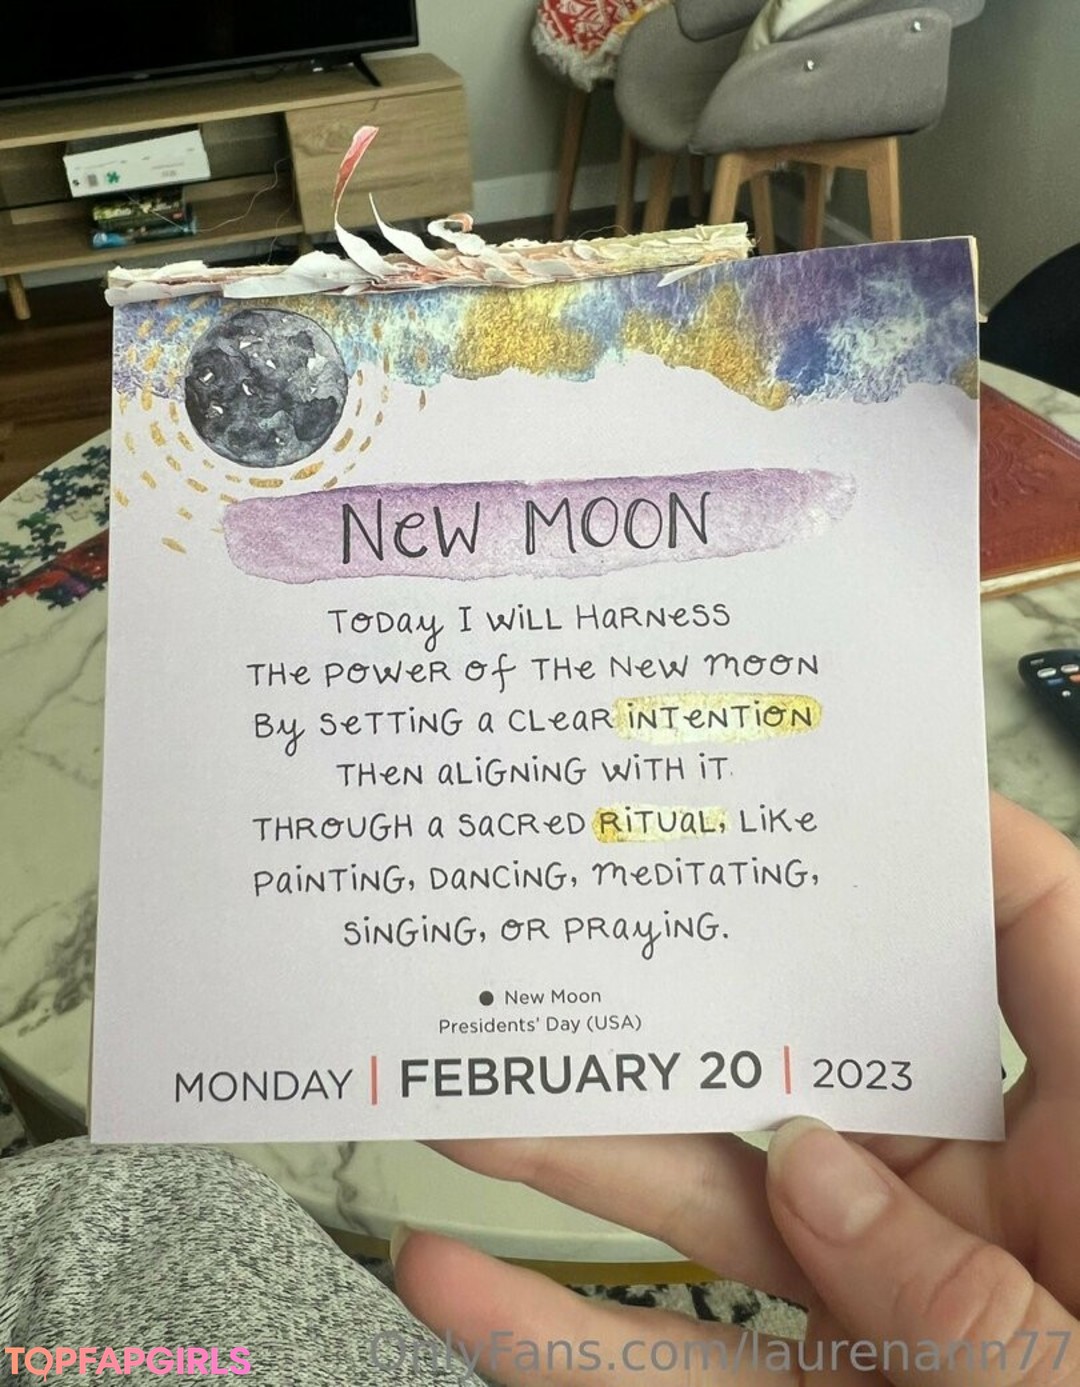 NEW MOON
TODAY I WILL HARNESS
THE POWER OF THE NEW MOON
BY SETTING A CLEAR INTENTION
THEN ALIGNING WITH IT
THROUGH A SACRED RITUAL, LIKE
PAINTING, DANCING, MEDITATING,
SINGING, OR PRAYING.
New Moon
Presidents' Day (USA)
MONDAY | FEBRUARY 20 | 2023
TOPFAPGIRLS
OnlyFans.com/laurenann77